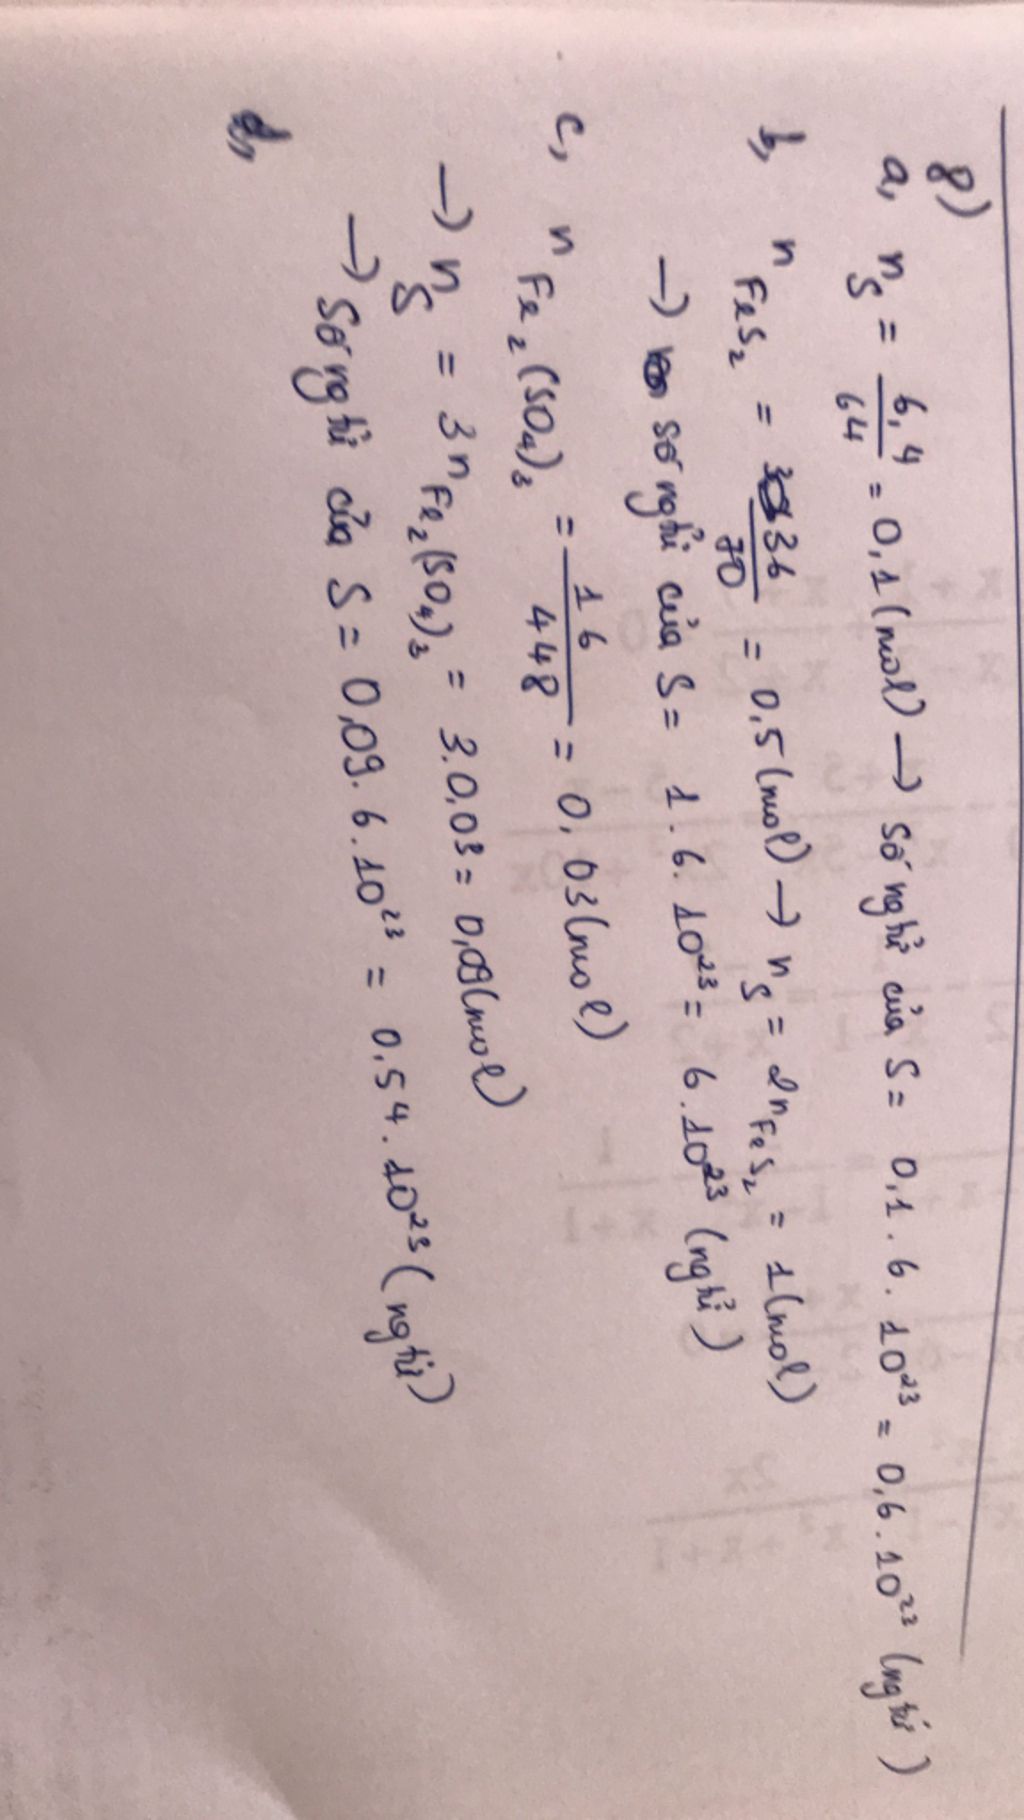 8)
a, n_S = 6,4/64 = 0,1 (mol) → số nghtử của S = 0,1 . 6 . 10²³ = 0,6 . 10²³ (nghtử)
b, n_FeS₂ = 36/70 = 0,5 (mol) → n_S = 2n_FeS₂ = 1 (mol)
→ số nghtử của S = 1 . 6 . 10²³ = 6 . 10²³ (nghtử)
c, n_Fe₂(SO₄)₃ = 16/448 = 0,03 (mol)
→ n_S = 3n_Fe₂(SO₄)₃ = 3.0,03 = 0,09 (mol)
→ Số nghtử của S = 0,09 . 6 . 10²³ = 0,54 . 10²³ (nghtử)
d,